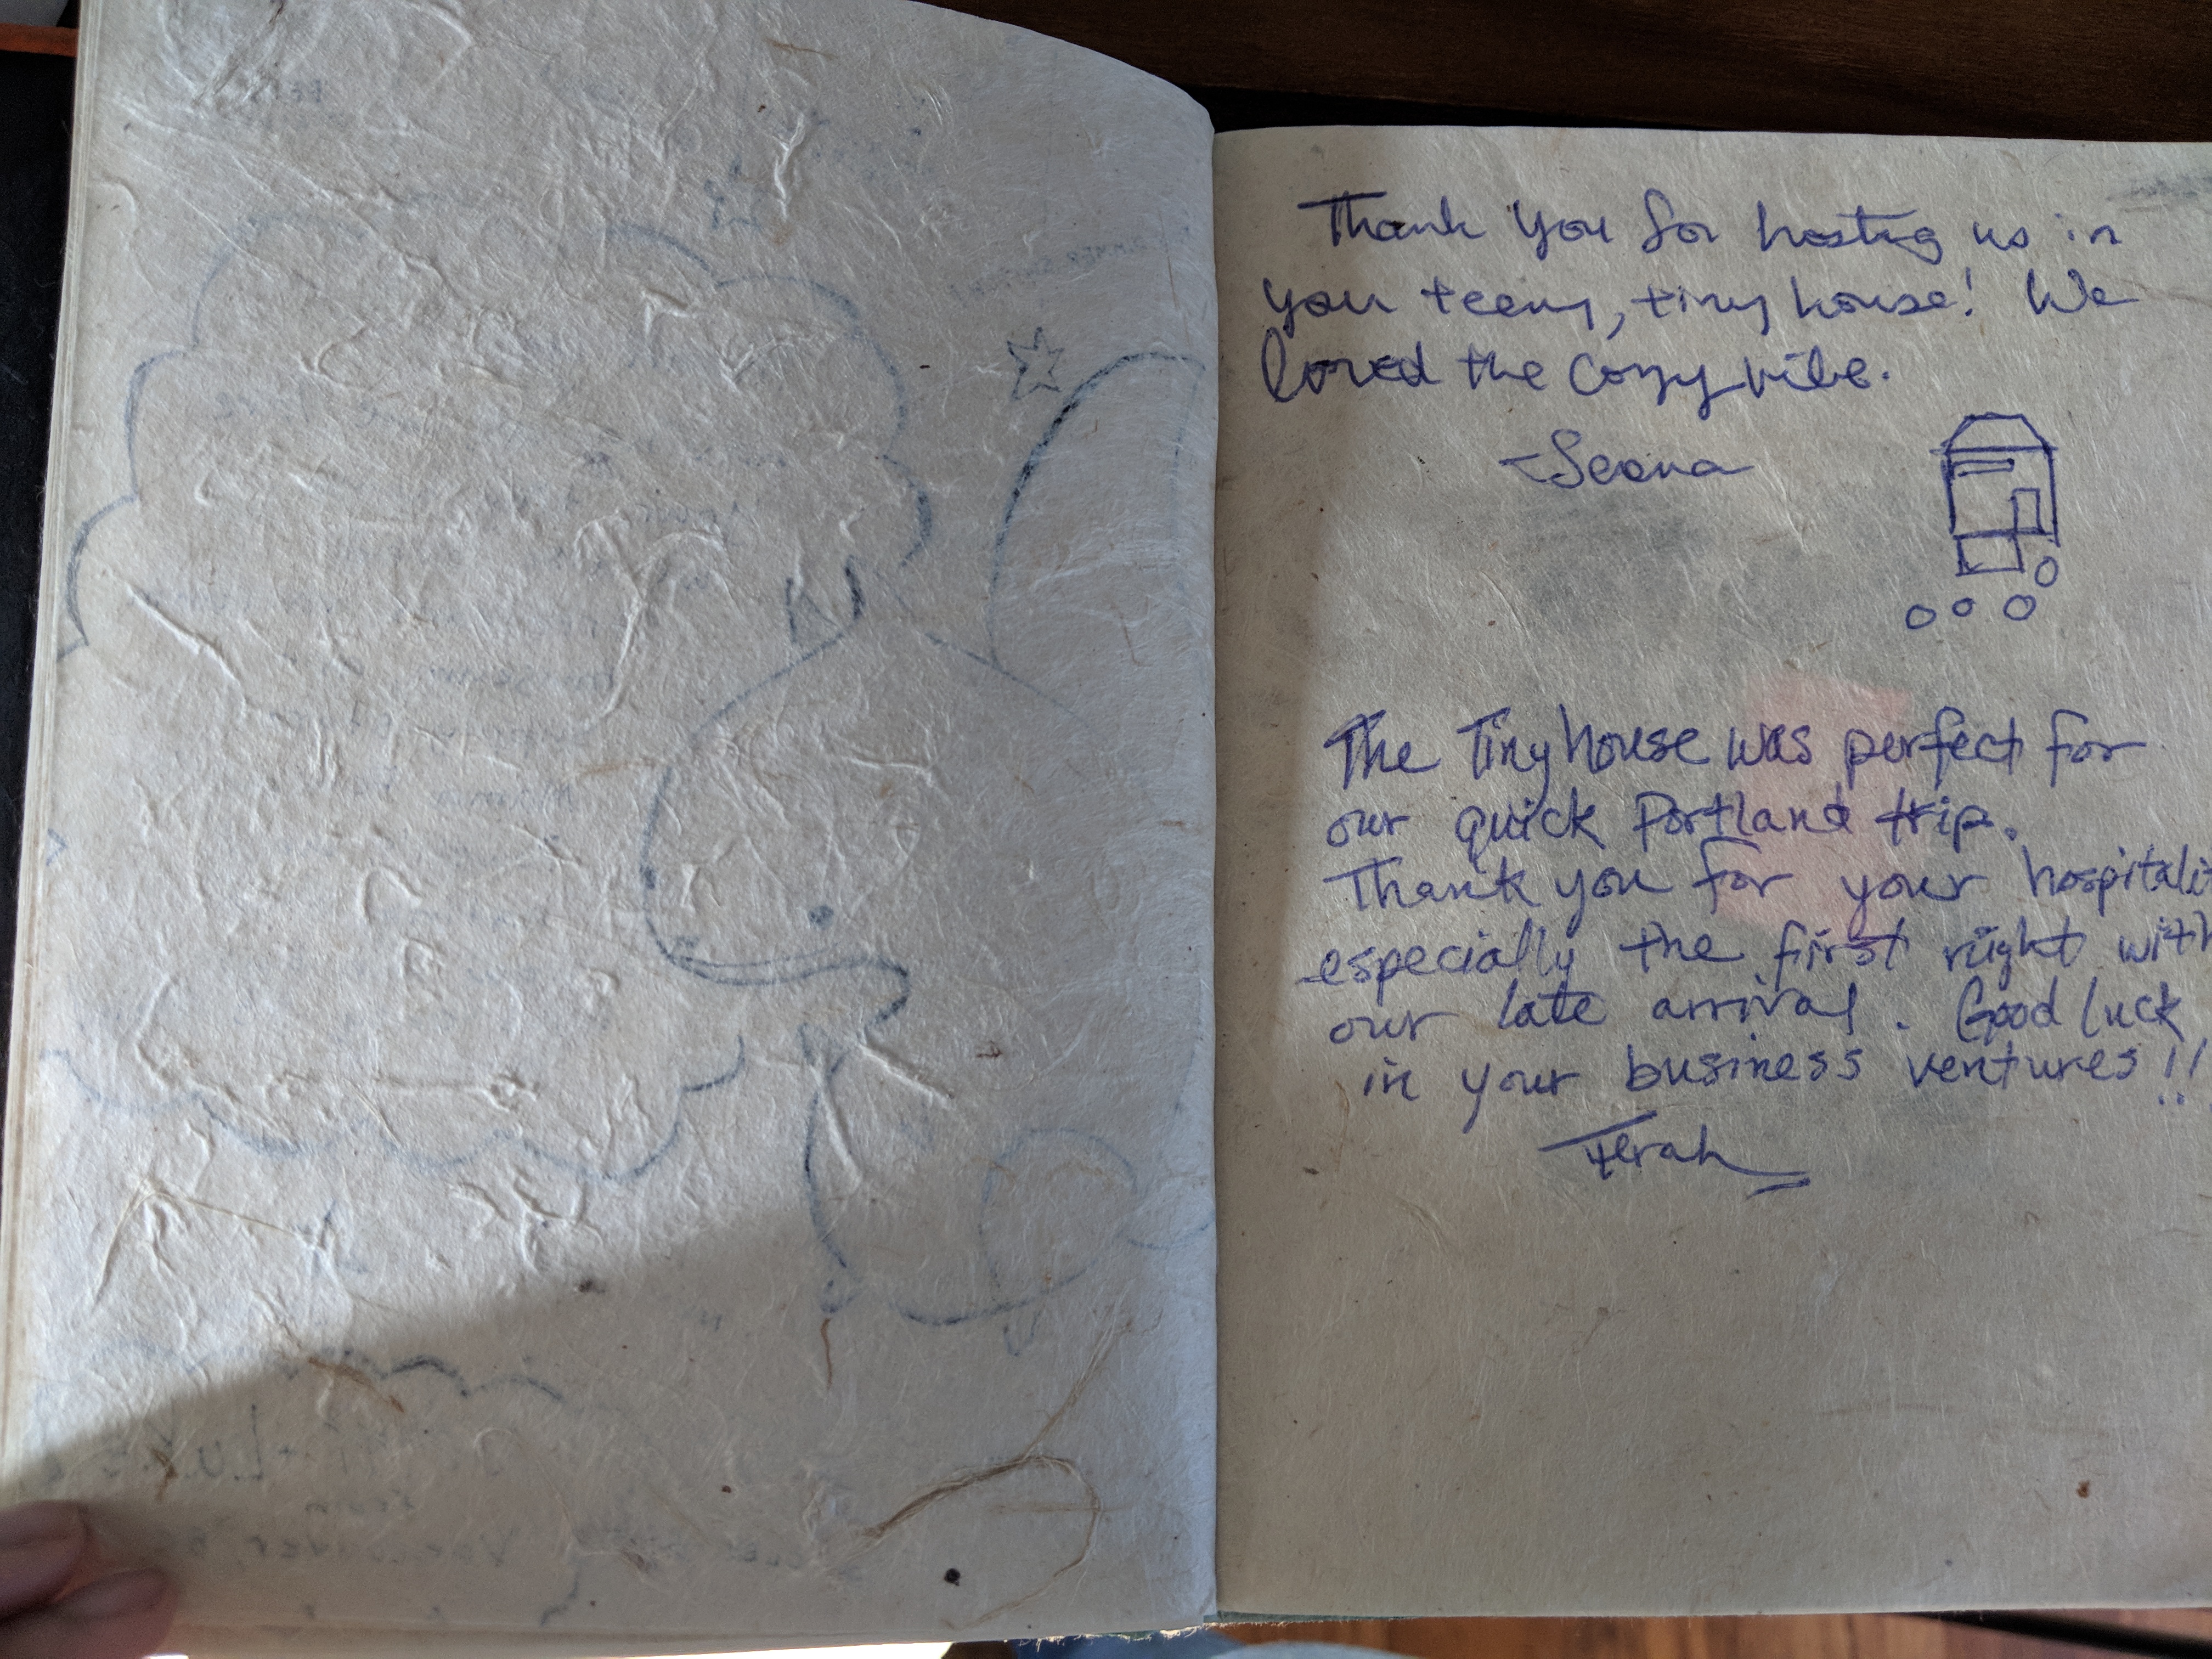 Thank you for hosting us in
you teeny, tiny house! We
loved the cozy vibe.
-Seana
The Tiny house was perfect for
our quick Portland trip.
Thank you for your hospitalit
especially the first night with
our late arrival. Good luck
in your business ventures!!